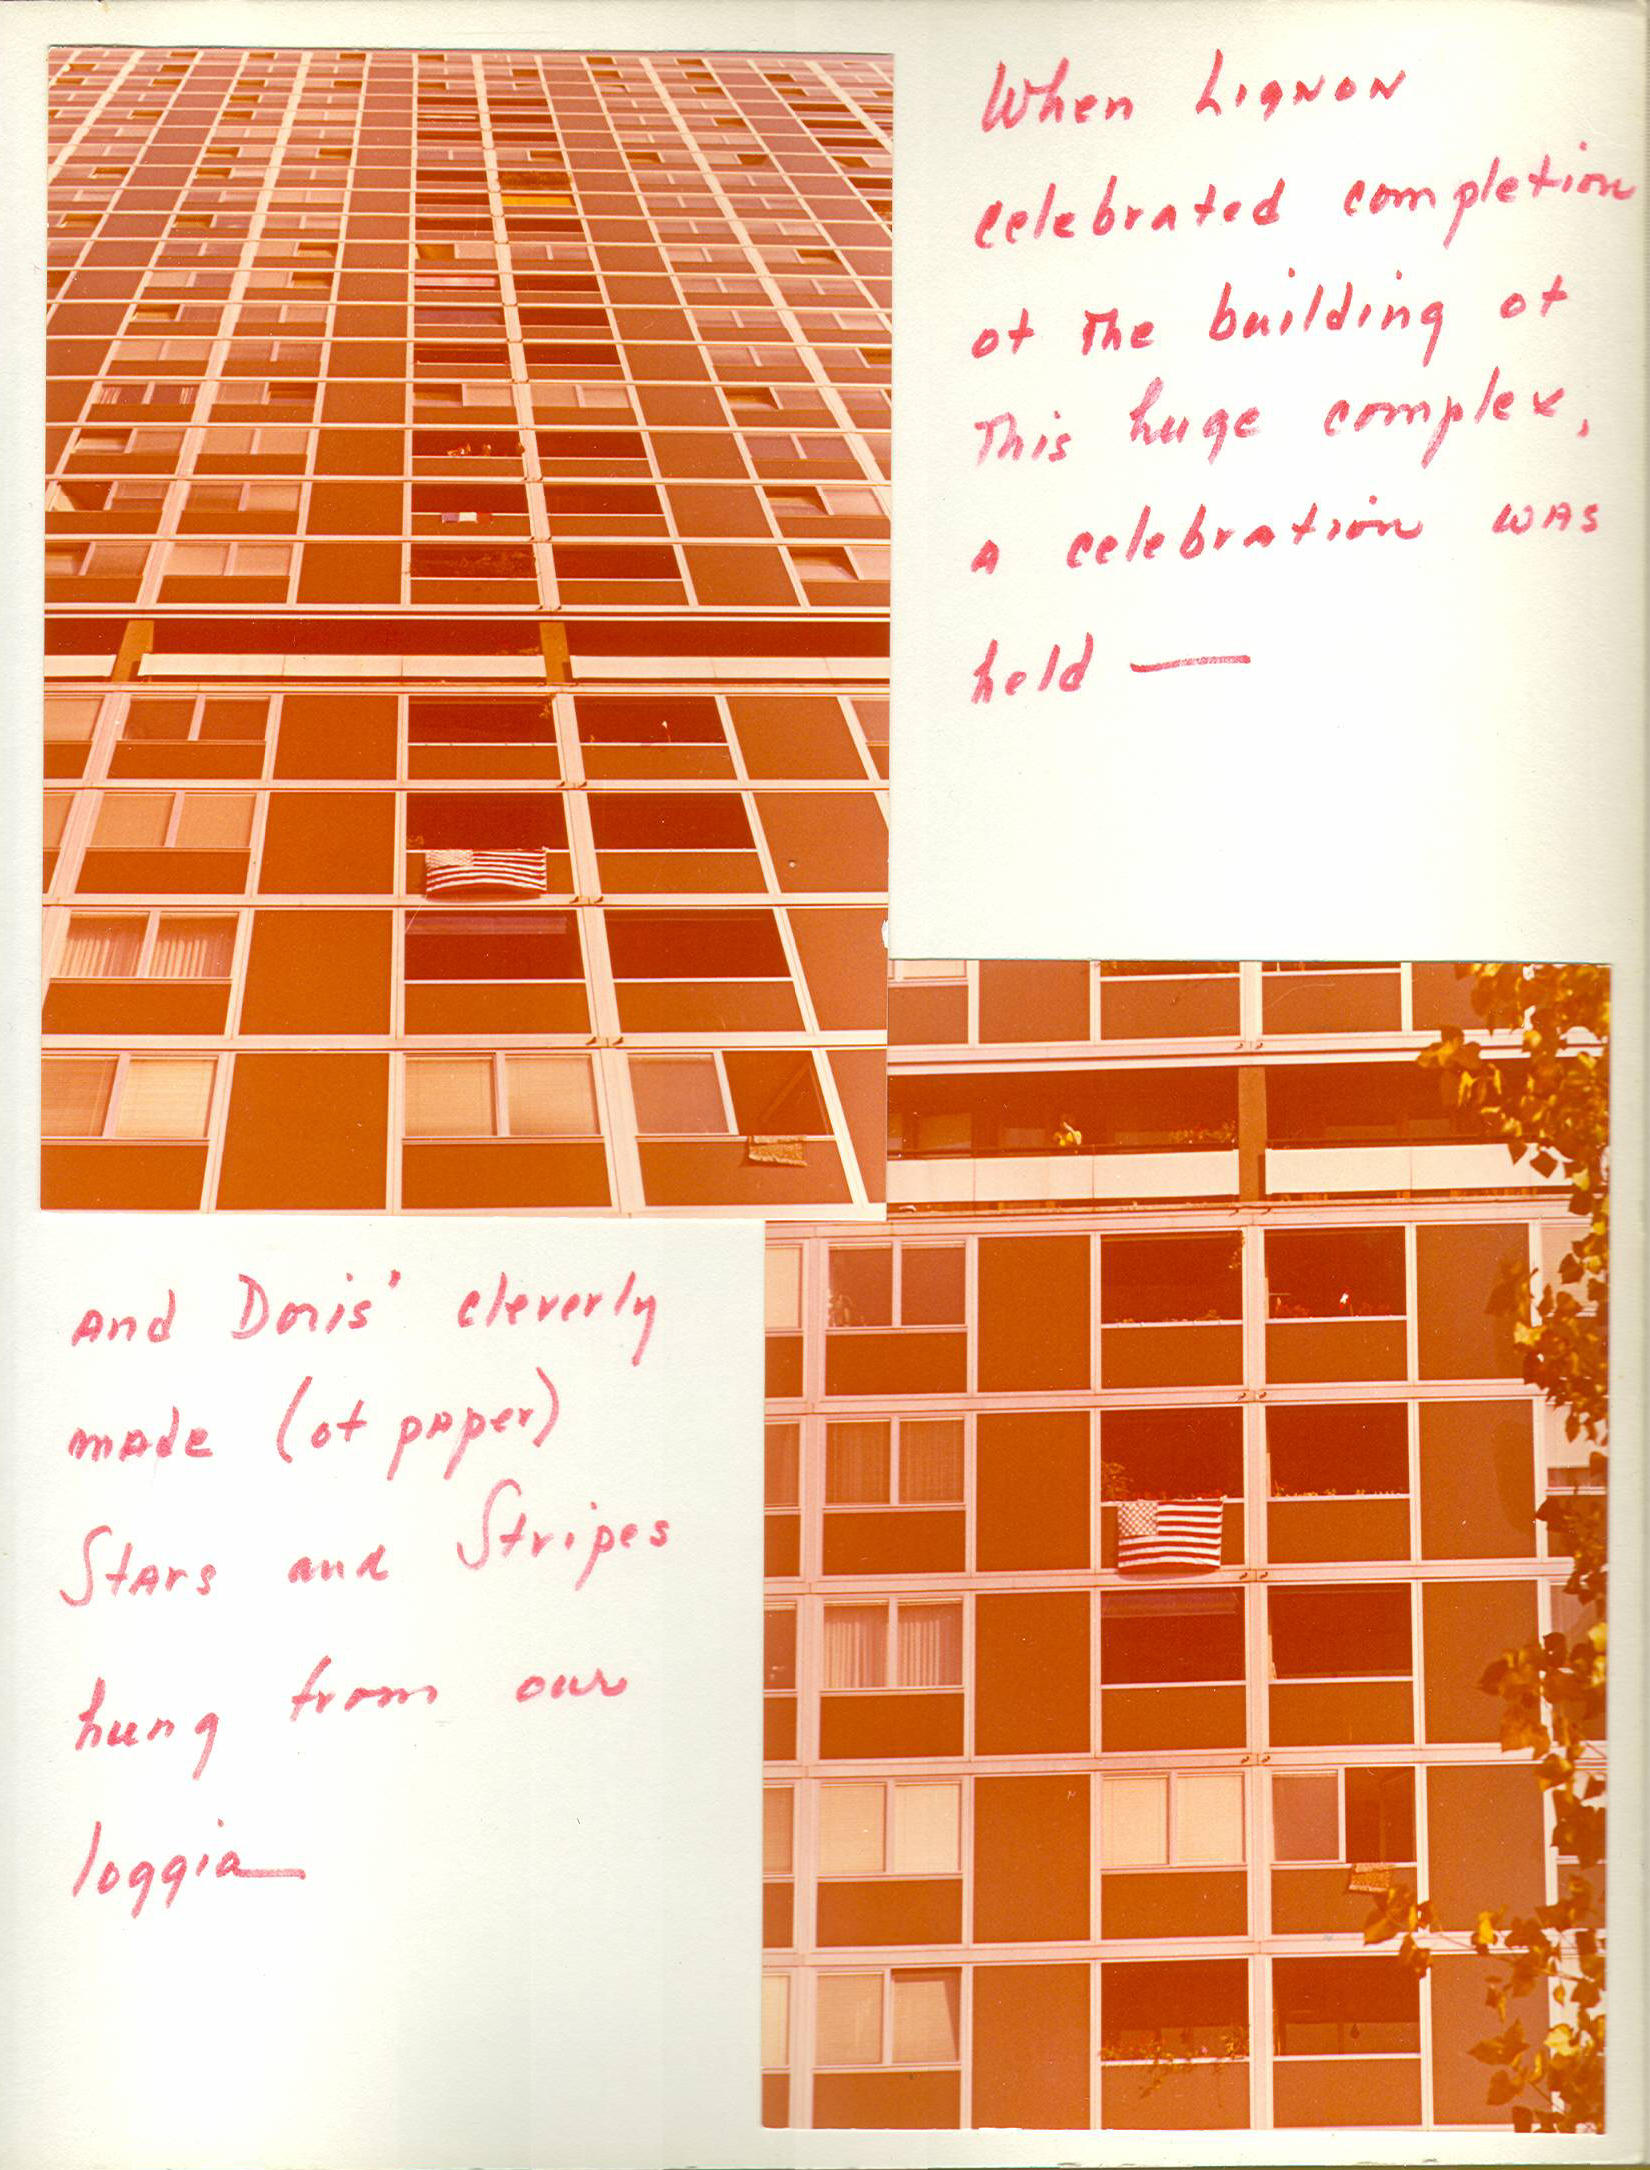 When Lignon
celebrated completion
of The building of
This huge complex,
a celebration was
held —
and Doris' cleverly
made (of paper)
Stars and Stripes
hung from our
loggia—